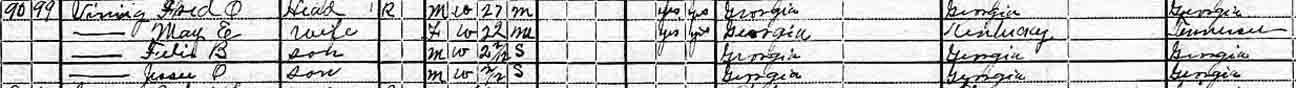 90 99 Vining Fred O Head 1 R M W 27 M yes yes Georgia Georgia Georgia
—— May E wife F W 22 M yes yes Georgia Kentucky Tennessee
—— Felix B son M W 2 S Georgia Georgia Georgia
—— Jessee O son M W S Georgia Georgia Georgia